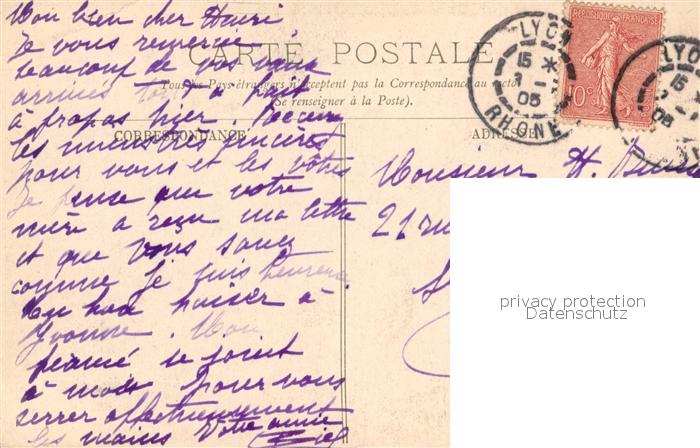 Mon bien cher Henri
Je vous remercie
beaucoup de vos vœux
arrivés tout à fait
à propos hier. Recevez
les miens très sincères
pour vous et les vôtres
Je pense que votre
mère a reçu ma lettre
et que vous savez
comme je suis heureuse.
Un bon baiser à
Yvonne. Mon
fiancé se joint
à moi pour vous
serrer affectueusement
les mains Votre amie
CARTE POSTALE
Tous les Pays étrangers n'acceptent pas la Correspondance au recto
(Se renseigner à la Poste).
CORRESPONDANCE
ADRESSE
Monsieur H.
21 ru
REPUBLIQUE FRANÇAISE
10c
LYON
15 *
05
RHONE
LYO
15
05
privacy protection
Datenschutz